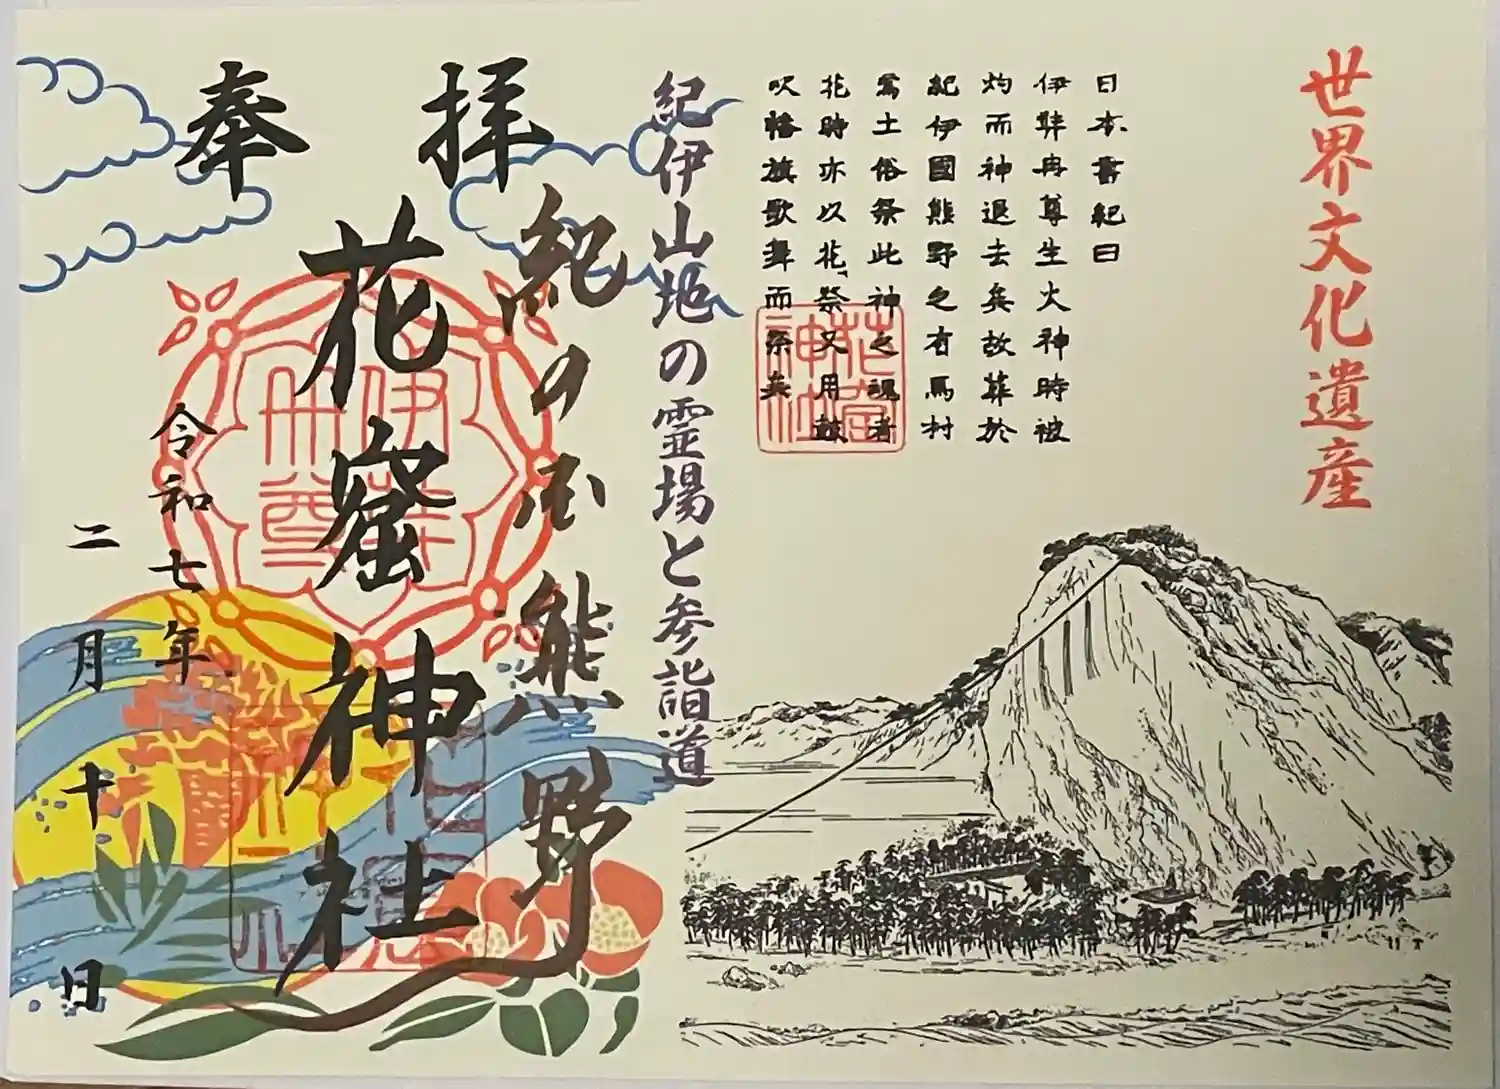 世界文化遺産
日本書紀曰
伊弉冉尊生火神時被
灼而神退去矣故葬於
紀伊國熊野之有馬村
焉土俗祭此神之魂者
花時亦以花祭又用鼓
吹幡旗歌舞而祭矣
花窟
神社
紀伊山地の霊場と参詣道
奉拝
紀の国熊野
花窟神社
伊弉
冉尊
令和七年
二月十日